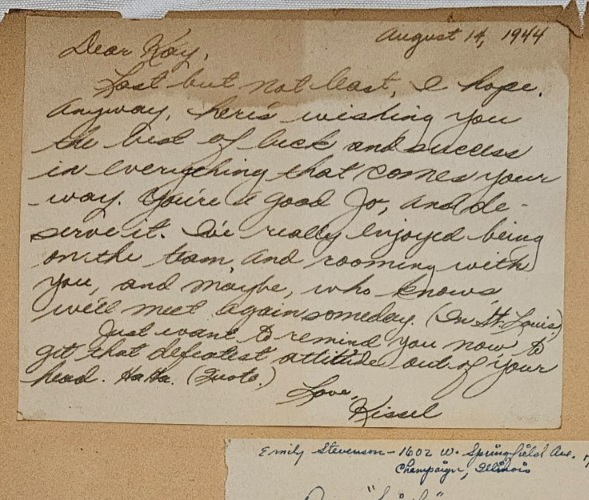 August 14, 1944
Dear Kay,
Last but not least, I hope.
Anyway, here's wishing you
the best of luck and success
in everything that comes your
way. You're a good Jo, and de-
serve it. I've really enjoyed being
on the team and rooming with
you, and maybe, who knows,
we'll meet again someday. (In St. Louis)
Just want to remind you now to
get that defeatest attitude out of your
head. HaHa. (Quote.)
Love,
Kissel
Emily Stevenson - 1602 W. Springfield Ave.
Champaign, Illinois